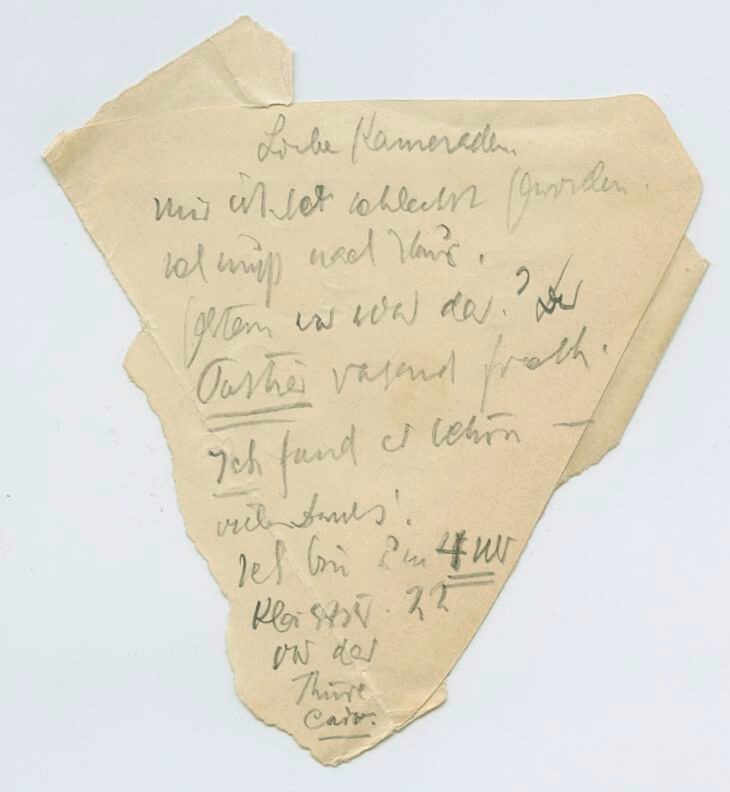 Liebe Kameraden.
mir ist sehr schlecht geworden.
ich muß nach Haus.
Gestern war da. Der
Portier rasend frech.
Ich fand es schön —
vielen Dank!
Ich bin um 4 Uhr
Kleiststr. 22
vor der
Thüre